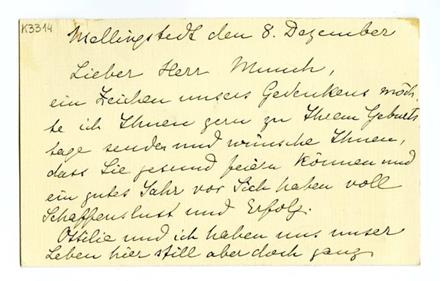 K3314
Mellingstedt den 8. Dezember
Lieber Herr Munch,
ein Zeichen unsers Gedenkens möch-
te ich Ihnen gern zu Ihrem Geburts
tage senden und wünsche Ihnen,
dass Sie gesund feiern können und
ein gutes Jahr vor Sich haben voll
Schaffenslust und Erfolg.
Ottilie und ich haben uns unser
Leben hier still aber doch ganz